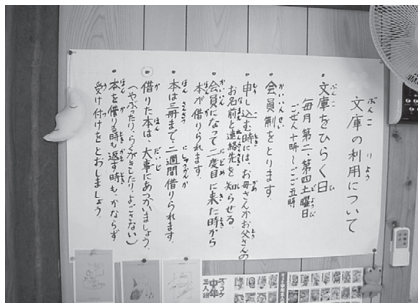 文庫の利用について
・文庫をひらく日
毎月第二、第四土曜日
ごぜん十時〜ごご五時
・会員制をとります
・申し込む時には、お母さんかお父さんの
お名前と連絡先を知らせる
・会員になって二度目に来た時から
本が借りられます。
・本は三冊まで、二週間借りられます。
・借りた本は、大事にあつかいましょう。
(やぶったり、らくがきしたり、よごさない)
・本を借りる時も返す時も、かならず
受け付けをとおしましょう。